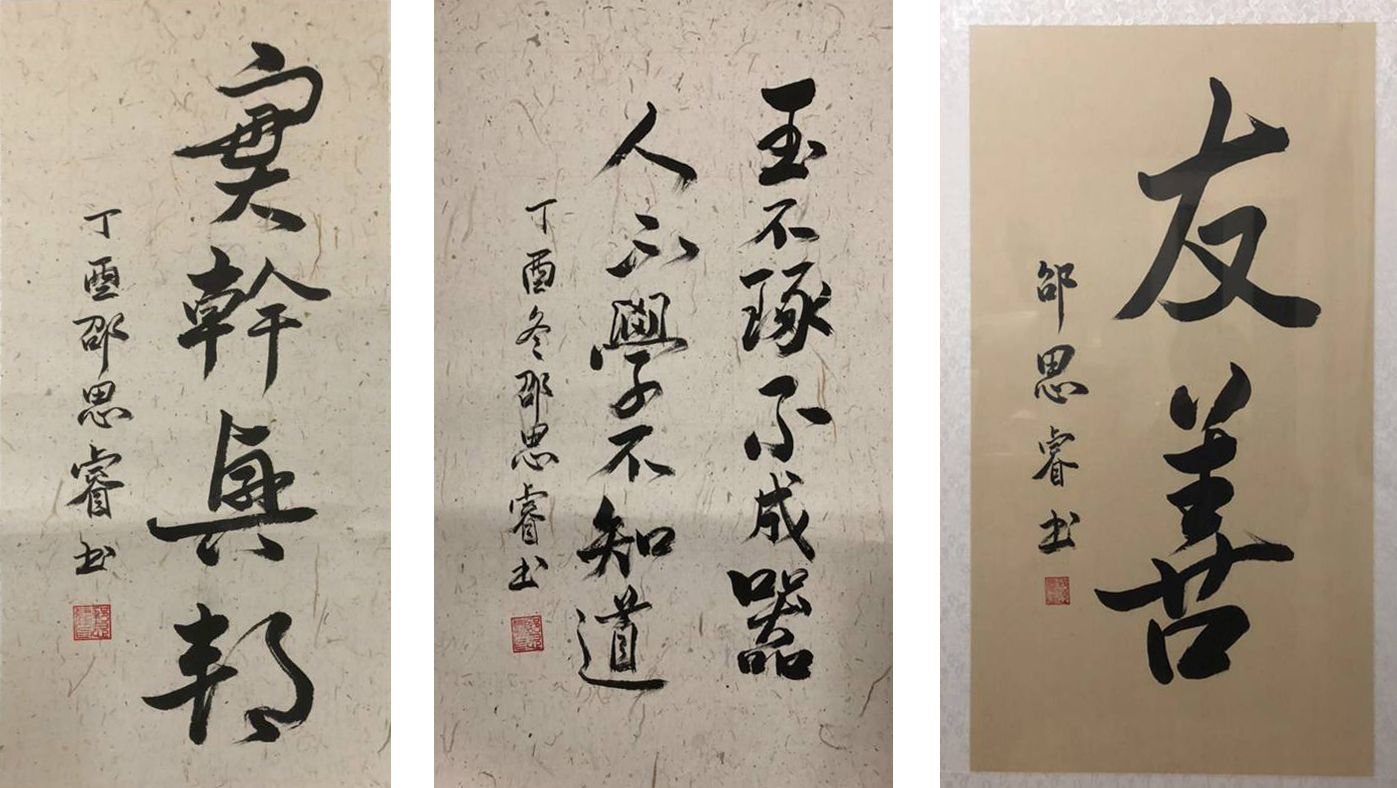 實幹興邦
丁酉邵思睿书
玉不琢不成器
人不學不知道
丁酉冬邵思睿书
友善
邵思睿书